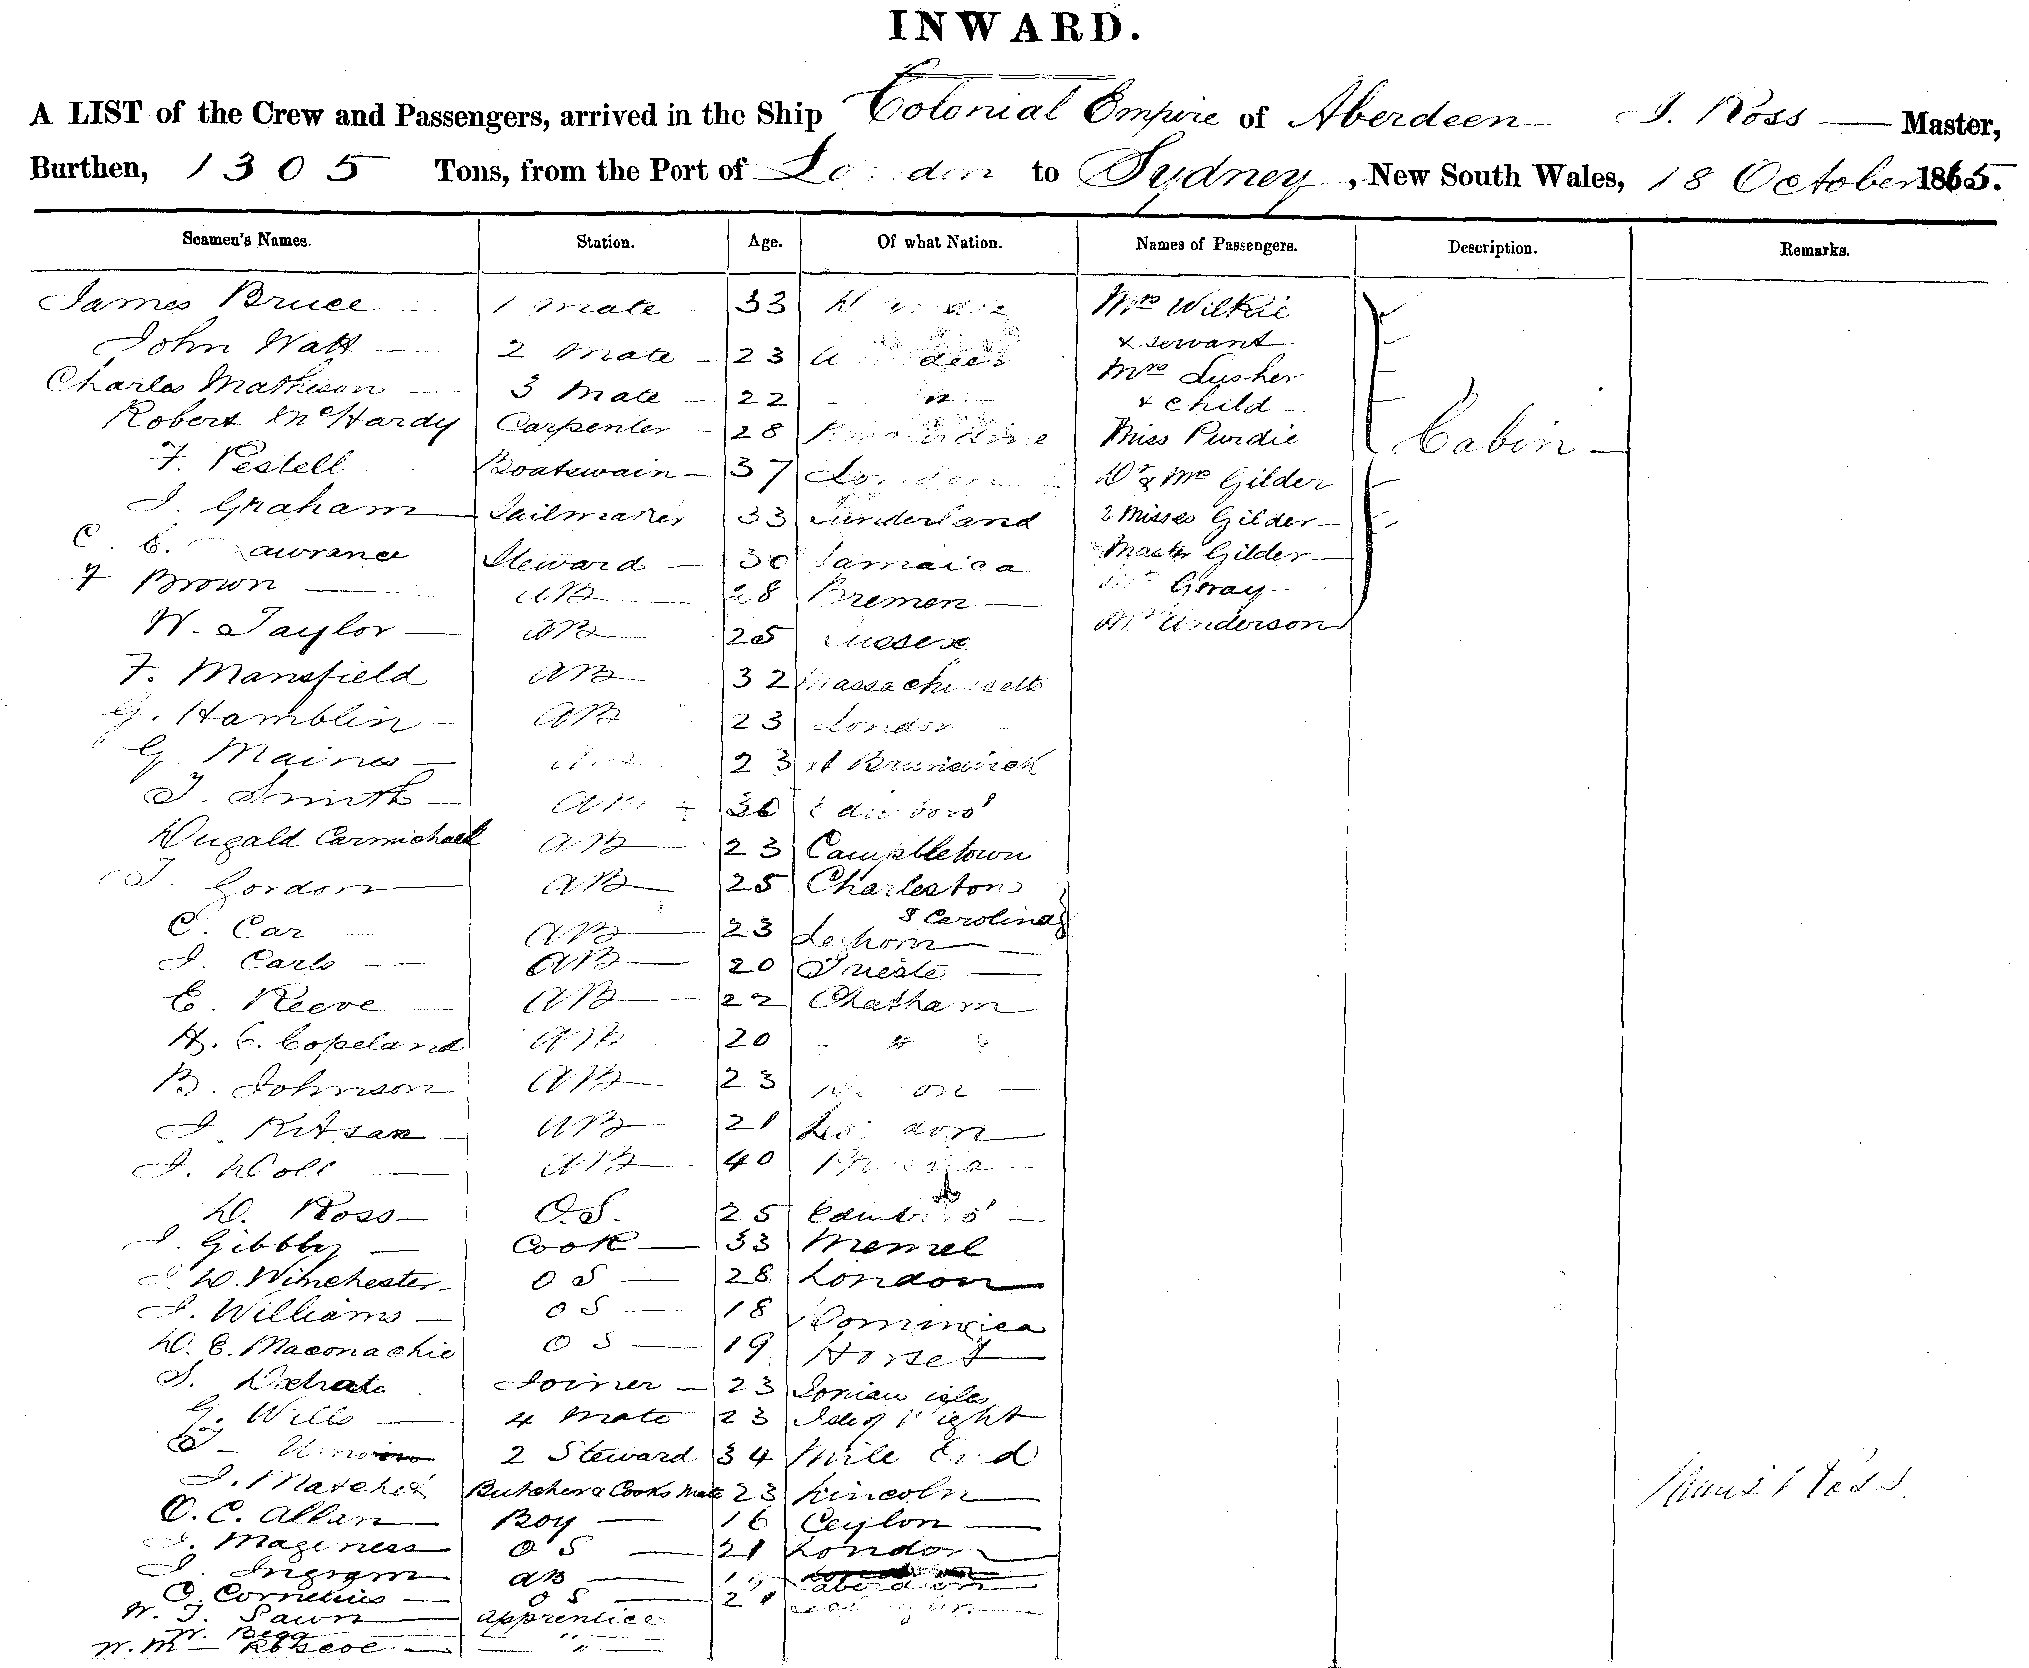 INWARD.
A LIST of the Crew and Passengers, arrived in the Ship Colonial Empire of Aberdeen J. Ross Master,
Burthen, 1305 Tons, from the Port of London to Sydney, New South Wales, 18 October 1865.
Seamen's Names. Station. Age. Of what Nation. Names of Passengers. Description. Remarks.
James Bruce 1 Mate 33 Mrs Wilkie
John Watt 2 Mate 23 & servant
Charles Mathieson 3 Mate 22 " Mrs Lusher
& child
Robert McHardy Carpenter 28 Miss Purdie Cabin
F. Pestell Boatswain 37 London Dr & Mrs Gilder
J. Graham Sailmaker 33 Sunderland 2 Misses Gilder
C. E. Lawrance Steward 30 Jamaica Master Gilder
F Brown AB 28 Bremen Gray
W. Taylor AB 25 Sussex Mr Anderson
F. Mansfield AB 32 Massachusetts
G. Hamblin AB 23 London
G. Maines 23 St Brunswick
J. Smith AB 30 Edinboro'
Dugald Carmichael AB 23 Campbletown
J. Gordon AB 25 Charleston
S Carolina
C. Car AB 23 Leghorn
J. Carls AB 20 Trieste
E. Reeve AB 22 Chatham
H. C. Copeland AB 20 "
B. Johnson AB 23
J. Kitson AB 21 London
J. AB 40
D. Ross O.S. 25 Edinboro'
J. Gibbby Cook 33 Memel
J D. Winchester OS 28 London
J. Williams OS 18 Dominica
D. E. Maconachie OS 19 Dorset
S. Joiner 23 Ionian isles
G. Wills 4 Mate 23 Isle of Wight
2 Steward 34 Mile End
J. Matches Butcher & Cooks Mate 23 Lincoln
C. C. Allan Boy 16 Ceylon
J. Maginess OS 21 London
J. Ingram AB 19 Aberdeen
C. Cornelius OS 21
W. J. Sawn apprentice
W. Begg
W. M Roscoe "
James Ross